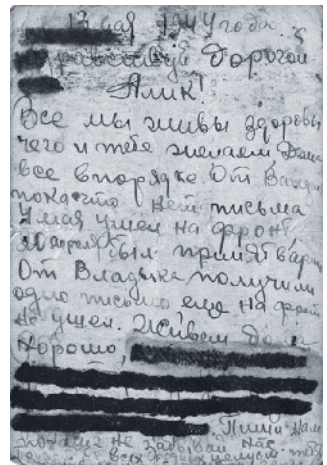 13 мая 1944 года.
Здравствуй дорогой
Алик!
Все мы живы здоровы
чего и тебе желаем, Дома
все в порядке. От Вали
пока что нет письма
мая ушел на фронт,
апреля был принят в
От Владика получили
одно письмо еще на фронт
не ушел. Живем дома
хорошо,
Пиши нам
почаще не забывай нас
всех целуем